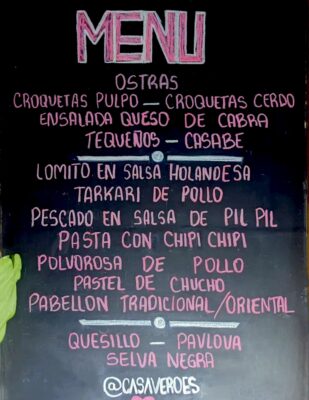 MENU
OSTRAS
CROQUETAS PULPO — CROQUETAS CERDO
ENSALADA QUESO DE CABRA
TEQUEÑOS — CASABE
LOMITO EN SALSA HOLANDESA
TARKARI DE POLLO
PESCADO EN SALSA DE PIL PIL
PASTA CON CHIPI CHIPI
POLVOROSA DE POLLO
PASTEL DE CHUCHO
PABELLON TRADICIONAL/ORIENTAL
QUESILLO — PAVLOVA
SELVA NEGRA
@CASAVEROES